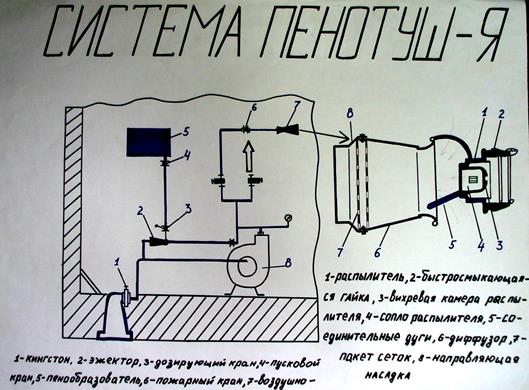 СИСТЕМА ПЕНОТУШ-Я
6
7
8
1
2
5
4
3
2
8
1
7
6
5
4
3
1-распылитель, 2-быстросмыкающа-
яся гайка, 3-вихревая камера распы-
лителя, 4-сопло распылителя, 5-со-
единительные дуги, 6-диффузор, 7-
пакет сеток, 8-направляющая
насадка
1-кингстон, 2-эжектор, 3-дозирующий кран, 4-пусковой
кран, 5-пенообразователь, 6-пожарный кран, 7-воздушно-